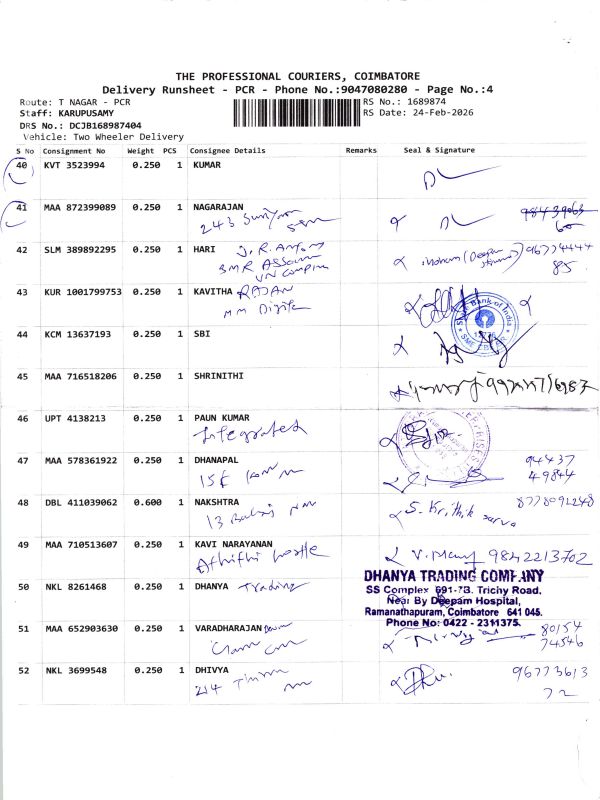 THE PROFESSIONAL COURIERS, COIMBATORE
Delivery Runsheet - PCR - Phone No.:9047080280 - Page No.:4
Route: T NAGAR - PCR
RS No.: 1689874
Staff: KARUPUSAMY
RS Date: 24-Feb-2026
DRS No.: DCJB168987404
Vehicle: Two Wheeler Delivery
S No Consignment No Weight PCS Consignee Details Remarks Seal & Signature
40 KVT 3523994 0.250 1 KUMAR
41 MAA 872399089 0.250 1 NAGARAJAN
243
42 SLM 389892295 0.250 1 HARI J.R. Antony
96774444
85
43 KUR 1001799753 0.250 1 KAVITHA RAJAN
MM
State Bank of India
44 KCM 13637193 0.250 1 SBI
45 MAA 716518206 0.250 1 SHRINITHI
46 UPT 4138213 0.250 1 PAUN KUMAR
Integrated
47 MAA 578361922 0.250 1 DHANAPAL
94437
49844
48 DBL 411039062 0.600 1 NAKSHTRA
13
S. Krithik
8778091248
49 MAA 710513607 0.250 1 KAVI NARAYANAN
Athithi
9842213702
50 NKL 8261468 0.250 1 DHANYA Trading
DHANYA TRADING COMPANY
SS Complex 691-7B. Trichy Road.
Near By Deepam Hospital,
Ramanathapuram, Coimbatore 641 045.
Phone No: 0422 - 2311375.
51 MAA 652903630 0.250 1 VARADHARAJAN
80154
74546
52 NKL 3699548 0.250 1 DHIVYA
214
96773613
72